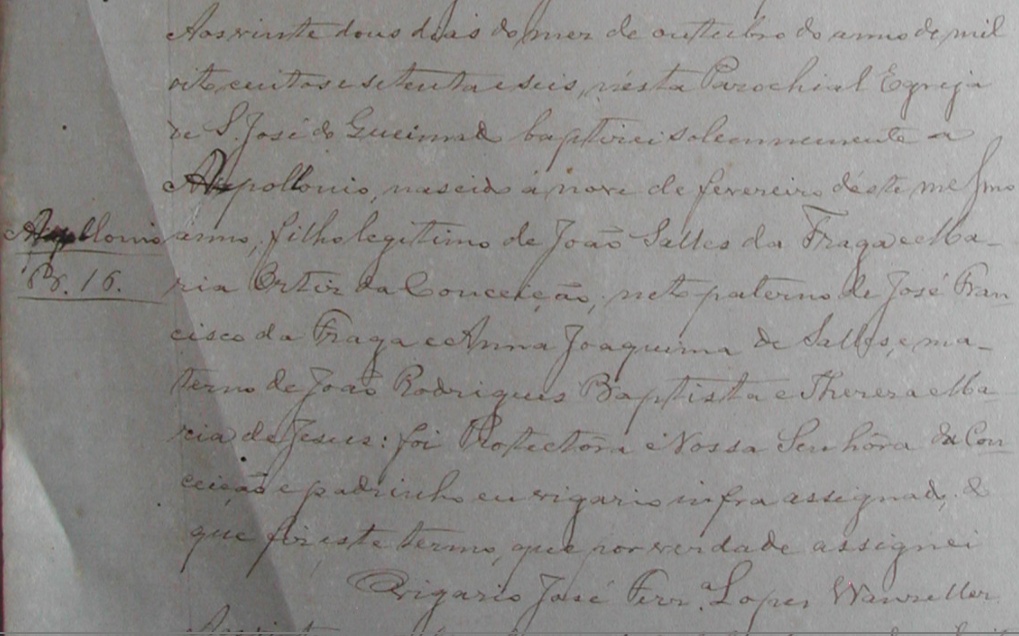 Aos vinte dous dias do mez de outubro do anno de mil
oito centos e setenta e seis, nésta Parochial Egreja
de S. José do Queimado baptizei solemnemente a
Appollonio, nascido á nove de fevereiro déste mesmo
Appollonio anno, filho legitimo de João Salles da Fraga e Ma-
B. 16. ria Ortiz da Conceição, neto paterno de José Fran-
cisco da Fraga e Anna Joaquina de Salles, e ma-
terno de João Rodrigues Baptista e Thereza Ma
ria de Jesus: foi Protectôra é Nossa Senhôra da Con-
ceição e padrinho eu vigario infra assignado, do
que fiz este termo, que por verdade assignei
O Vigario José Ferr.ª Lopes Wanzeller